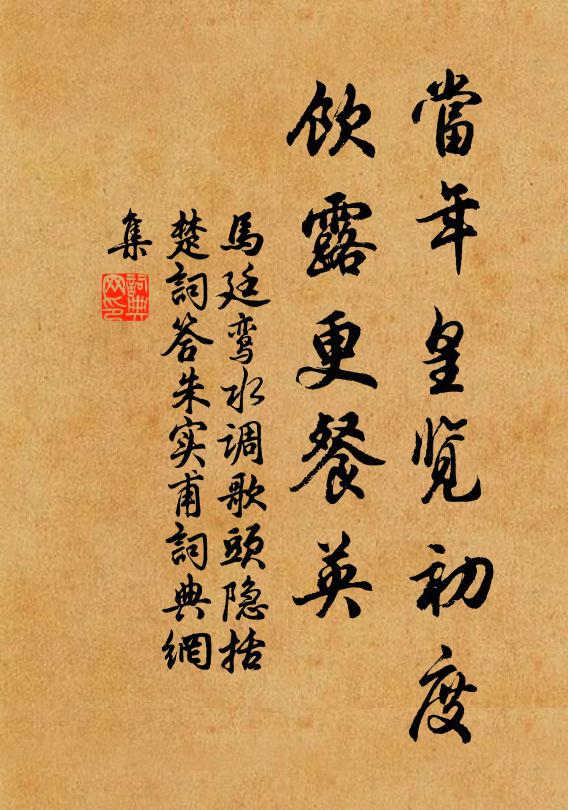 當年皇览初度
飲露更餐英
馬廷鸾水调歌頭隐括
楚詞答朱实甫詞典網
集
詞典
网印